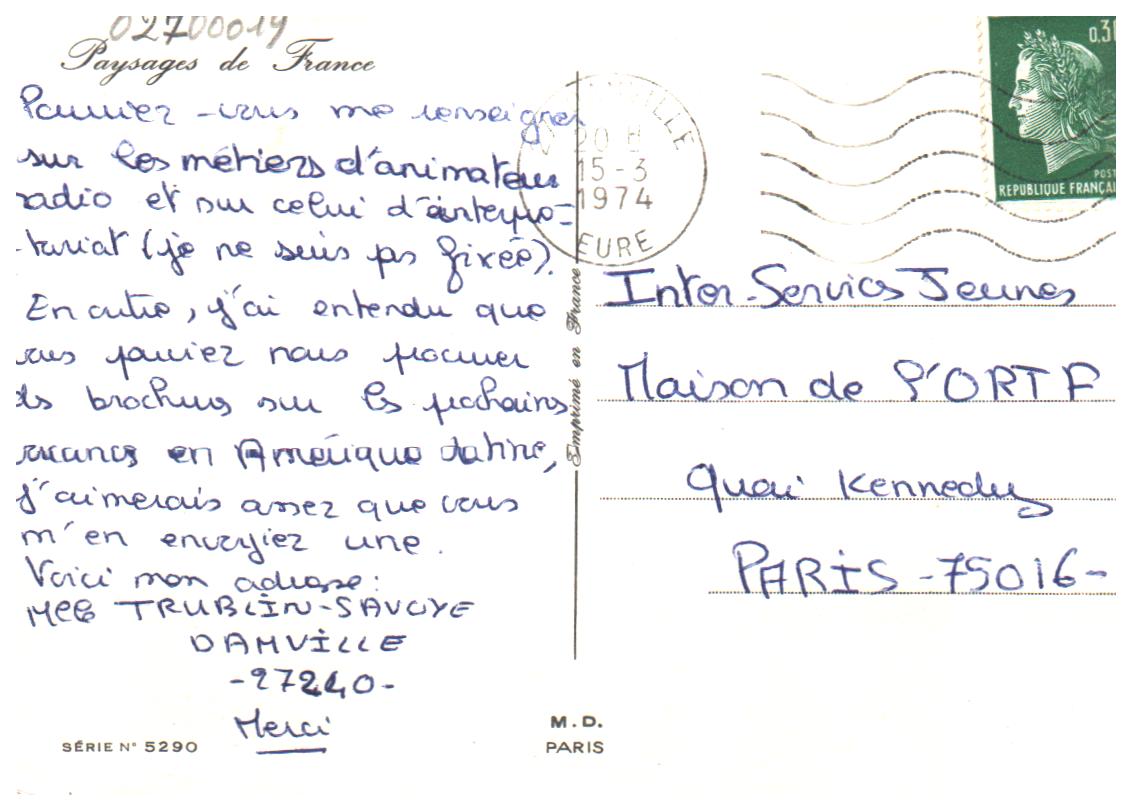 02700014
Paysages de France
Pourriez-vous me renseigner
sur les métiers d'animateur
radio et sur celui d'interpré-
tariat (je ne suis pas fixée).
En outre, j'ai entendu que
vous pouviez nous procurer
des brochures sur les prochaines
vacances en Amérique Latine,
j'aimerais assez que vous
m'en envoyiez une.
Voici mon adresse:
Melle TRUBLIN-SAVOYE
DAMVILLE
-27240-
Merci
SÉRIE N° 5290
Imprimé en France
M. D.
PARIS
20 H
15-3
1974
EURE
0,30
POSTES
REPUBLIQUE FRANÇAI
Inter-Services Jeunes
Maison de l'ORTF
Quai Kennedy
PARIS -75016-